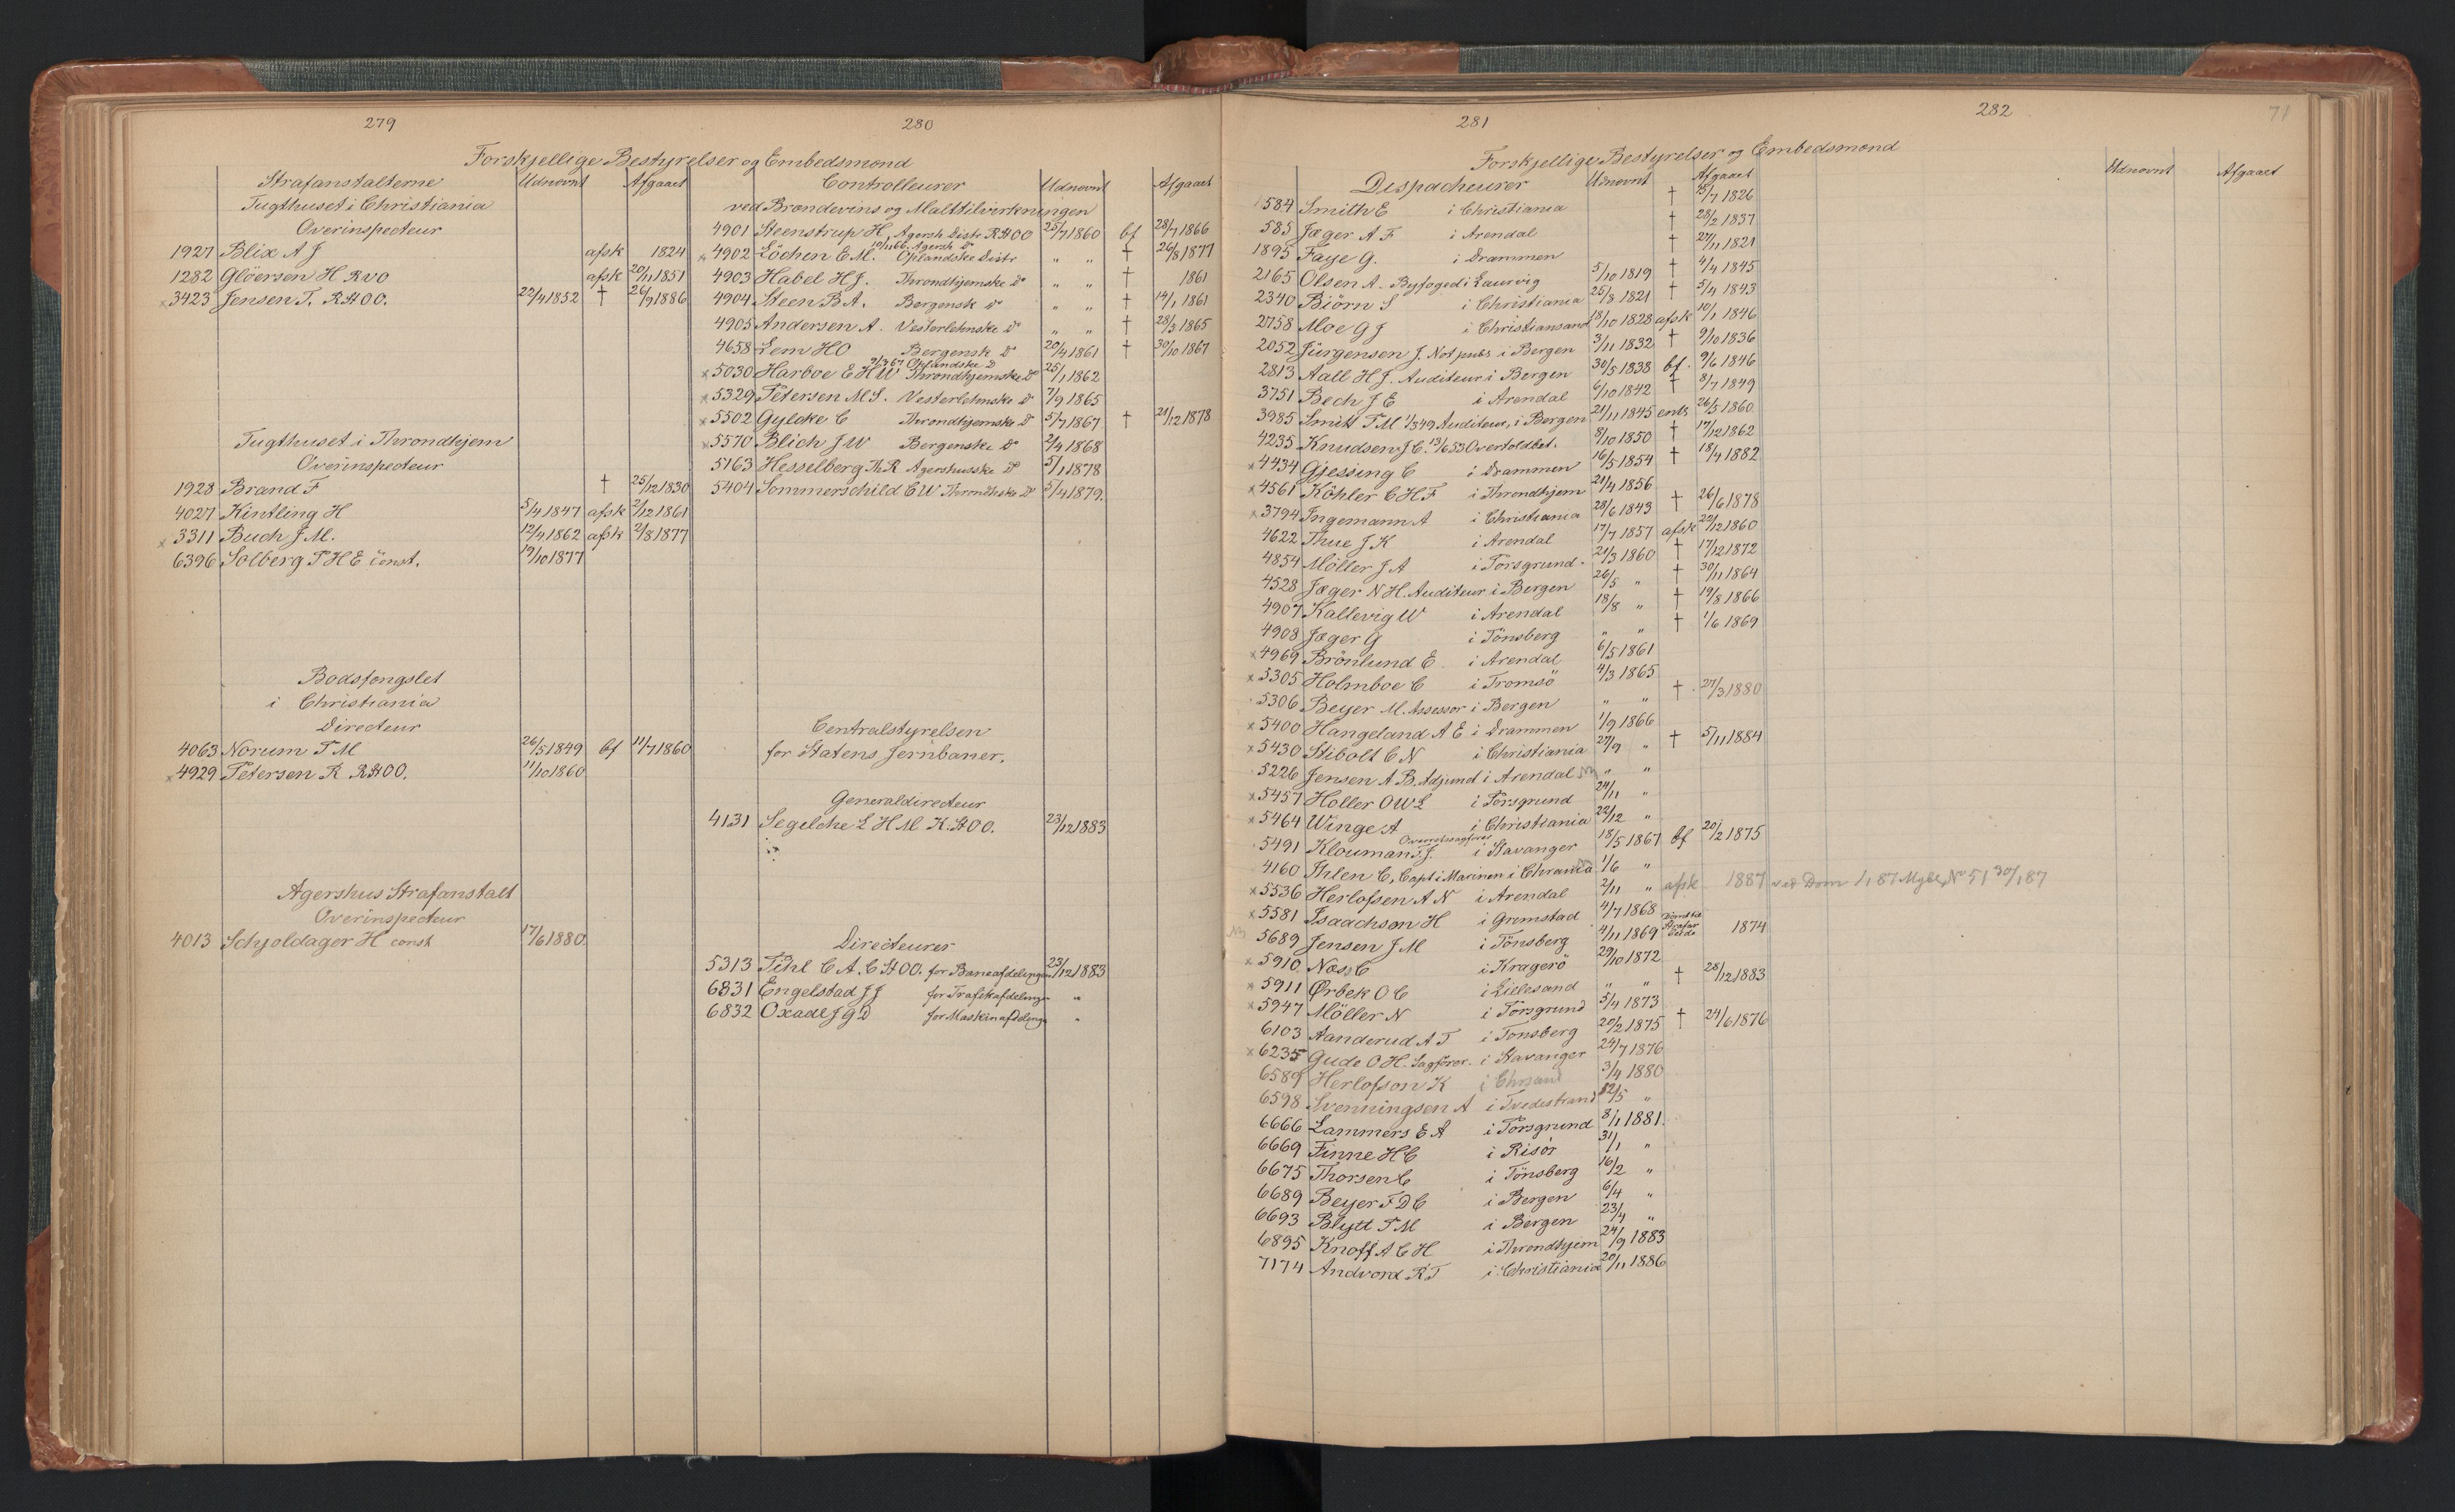 279
280
Forskjellige Bestyrelser og Embedsmænd
Strafanstalterne Udnævnt Afgaaet
Tugthuset i Christiania
Overinspecteur
1927 Blix A J afsk 1824
1282 Glöersen H RVO afsk 20/11 1851
× 3423 Jensen T. RStOO. 22/4 1852 † 26/9 1886
Tugthuset i Throndhjem
Overinspecteur
1928 Brand F † 25/12 1830
4027 Kintling H 5/4 1847 afsk 2/12 1861
× 3311 Buch J M. 12/4 1862 afsk 2/8 1877
6396 Solberg T H E const. 19/10 1877
Bodsfængslet
i Christiania
Directeur
4063 Norum T M 26/5 1849 bf 11/7 1860
× 4929 Petersen R RStOO. 11/10 1860
Agershus Strafanstalt
Overinspecteur
4013 Schjoldager H const 17/6 1880
Controlleurer Udnævnt Afgaaet
ved Brændevins og Malttilvirkningen
4901 Steenstrup H, Agersh Distr RStOO 25/7 1860 bf 28/7 1866
10/11 66 Agersh D°
× 4902 Löchen E M. Oplandske Distr " " † 26/8 1877
4903 Habel H J. Throndhjemske D° " " † 1861
4904 Steen B A. Bergensk D° " " † 14/1 1861
4905 Andersen A. Vesterlehnske D° " " † 28/3 1865
4658 Lem H O Bergensk D° 20/4 1861 † 30/10 1867
9/3 67 Oplandske D
× 5030 Harboe E H W Throndhjemske D° 25/1 1862
× 5329 Petersen M S. Vesterlehnske D° 7/9 1865
× 5502 Gylcke C Throndhjemske D° 5/7 1867 † 21/12 1878
× 5570 Blich J W Bergenske D° 2/4 1868
5163 Hesselberg Th R Agershusske D° 5/1 1878
5404 Sommerschild C W Throndhske D° 5/4 1879.
Centralstyrelsen
for Statens Jernbaner.
Generaldirecteur
4131 Segelcke L H M K.StOO. 23/12 1883
Directeurer
5313 Pihl C A. C StOO. for Baneafdelingen 23/12 1883
6831 Engelstad J J for Trafikafdelinge "
6832 Oxaal J G D for Maskinafdelinge "
281
282
71
Forskjellige Bestyrelser og Embedsmænd
Despacheurer Udnævnt Afgaaet Udnævnt Afgaaet
584 Smith E i Christiania † 15/7 1826
585 Jæger A F i Arendal † 28/2 1837
1895 Faye G. i Drammen † 27/11 1821
2165 Olsen A. Byfoged i Laurvig 5/10 1819 † 4/4 1845
2340 Biörn S i Christiania 25/8 1821 † 5/4 1843
2758 Moe G J i Christiansand 18/10 1828 afsk 10/1 1846
2052 Jürgensen J. Not pubs i Bergen 3/11 1832 † 9/10 1836
2813 Aall H J. Auditeur i Bergen 30/5 1838 bf. 9/6 1846
3751 Bech J E i Arendal 6/10 1842 † 8/7 1849
3985 Smit T M 1/3 49 Auditeur, i Bergen 21/11 1845 ents 26/5 1860
4235 Knudsen J C. 13/6 53 Overtoldbet. 8/10 1850 † 17/12 1862
× 4434 Gjessing C i Drammen 16/5 1854 † 18/4 1882
× 4561 Köhler C H F i Throndhjem 21/4 1856
× 3794 Ingemann A i Christiania 28/6 1843 † 26/6 1878
4622 Thue J K i Arendal 17/7 1857 afsk 22/12 1860
4854 Möller J A i Porsgrund. 21/3 1860 † 17/12 1872
4528 Jæger N H. Auditeur i Bergen 26/5 " † 30/11 1864
4907 Kallevig W i Arendal 18/8 " † 19/8 1866
4908 Jæger G i Tönsberg " " † 1/6 1869
× 4969 Brönlund E i Arendal 6/5 1861
× 5305 Holmboe C i Tromsö 4/3 1865
5306 Beyer M. Assessor i Bergen " " † 27/3 1880
× 5400 Hangeland A E i Drammen 1/9 1866
× 5430 Stibolt C N i Christiania 27/9 " † 5/11 1884
5226 Jensen A B. Adjunct i Arendal " "
× 5457 Holler O W L i Porsgrund 24/11 "
× 5464 Winge A i Christiania 22/12 "
Overretssagförer
5491 Klouman S J. i Stavanger 18/5 1867 bf 20/2 1875
4160 Ihlen C, Capt i Marinen i Chrania 1/6 "
× 5536 Herlofsen A N i Arendal 2/11 " afsk 1887 ved Dom 1/1 87 Mgbl N° 51 30/1 87
× 5581 Isaachsen H i Grimstad 4/7 1868
5689 Jensen J M i Tönsberg 4/11 1869 Dömt til Strafarbeide 1874
× 5910 Næss C i Kragerö 29/10 1872
× 5911 Ørbek O C i Lillesand " " † 28/12 1883
× 5947 Möller N i Porsgrund 5/4 1873
6103 Aanderud A T i Tønsberg 20/2 1875 † 24/6 1876
× 6235 Gude O H. Sagförer. i Stavanger 24/7 1876
6589 Herlofson K i Chrsand 3/4 1880
6598 Svenningsen A i Tvedestrand 12/5 "
6666 Lammers E A i Porsgrund 8/1 1881.
6669 Finne H C i Risör 31/1 "
6675 Thorsen C i Tönsberg 16/2 "
6689 Beyer F D C i Bergen 6/4 "
6693 Blytt T M i Bergen 23/4 "
6895 Knoff A C H i Throndhjem 24/9 1883
7174 Andvord R T i Christiania 20/11 1886